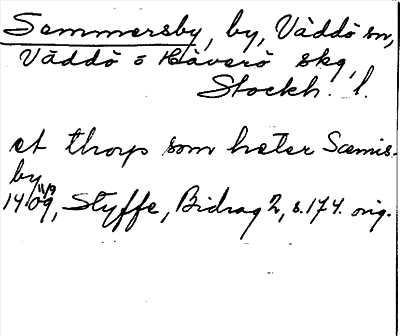 Sammersby, by, Väddö sn,
Väddö o Häverö skg,
Stockh. l.
et thorp som heter Sæmis-
by
1409 11/9, Styffe, Bidrag 2, s. 174. orig.